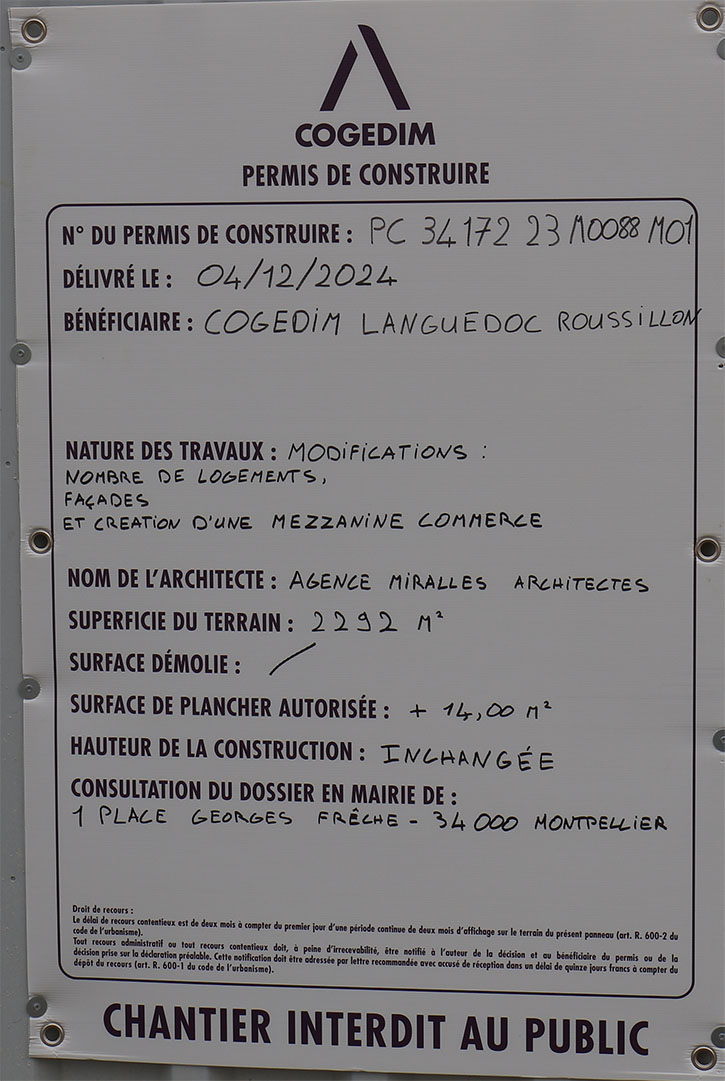 COGEDIM
PERMIS DE CONSTRUIRE
N° DU PERMIS DE CONSTRUIRE : PC 34172 23 M0088 M01
DÉLIVRÉ LE : 04/12/2024
BÉNÉFICIAIRE : COGEDIM LANGUEDOC ROUSSILLON
NATURE DES TRAVAUX : MODIFICATIONS :
NOMBRE DE LOGEMENTS,
FAÇADES
ET CREATION D'UNE MEZZANINE COMMERCE
NOM DE L'ARCHITECTE : AGENCE MIRALLES ARCHITECTES
SUPERFICIE DU TERRAIN : 2292 M²
SURFACE DÉMOLIE : /
SURFACE DE PLANCHER AUTORISÉE : + 14,00 M²
HAUTEUR DE LA CONSTRUCTION : INCHANGÉE
CONSULTATION DU DOSSIER EN MAIRIE DE :
1 PLACE GEORGES FRÊCHE - 34 000 MONTPELLIER
Droit de recours :
Le délai de recours contentieux est de deux mois à compter du premier jour d'une période continue de deux mois d'affichage sur le terrain du présent panneau (art. R. 600-2 du
code de l'urbanisme).
Tout recours administratif ou tout recours contentieux doit, à peine d'irrecevabilité, être notifié à l'auteur de la décision et au bénéficiaire du permis ou de la
décision prise sur la déclaration préalable. Cette notification doit être adressée par lettre recommandée avec accusé de réception dans un délai de quinze jours francs à compter du
dépôt du recours (art. R. 600-1 du code de l'urbanisme).
CHANTIER INTERDIT AU PUBLIC